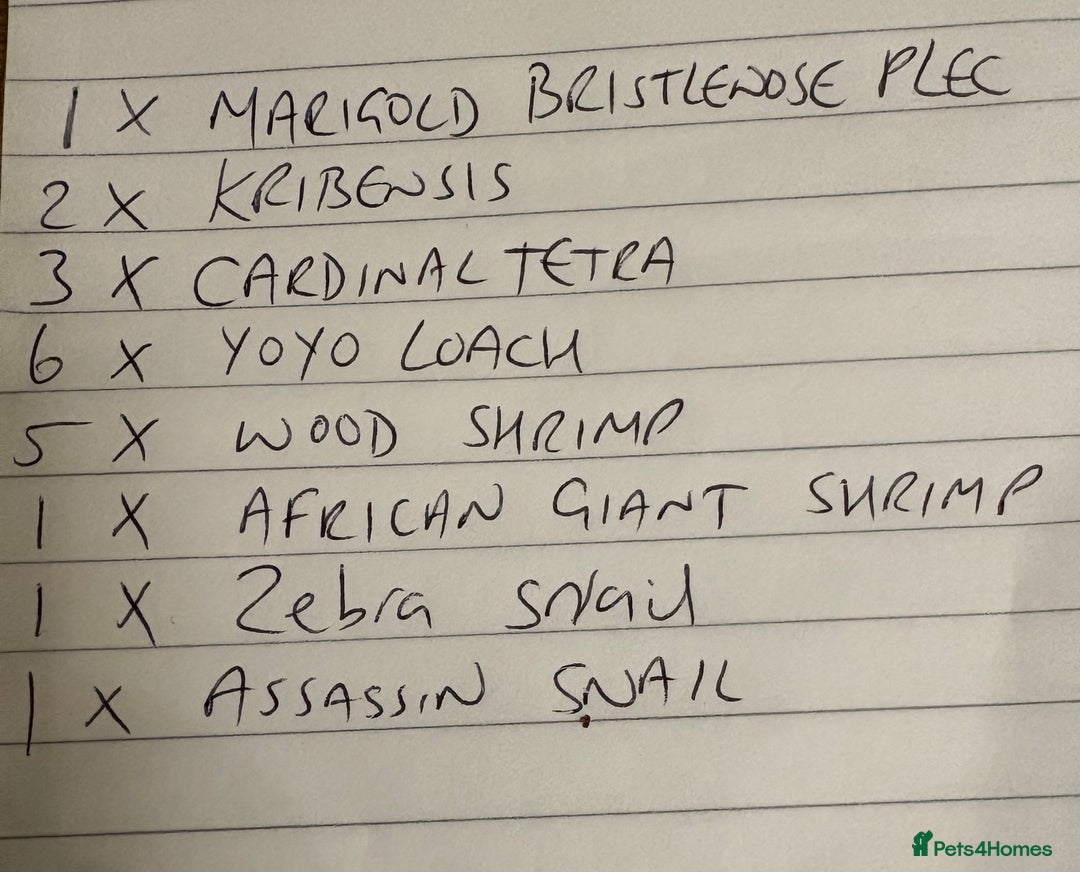 1 X MARIGOLD BRISTLENOSE PLEC
2 X KRIBENSIS
3 X CARDINAL TETRA
6 X YOYO LOACH
5 X WOOD SHRIMP
1 X AFRICAN GIANT SHRIMP
1 X Zebra snail
1 X ASSASSIN SNAIL
Pets4Homes